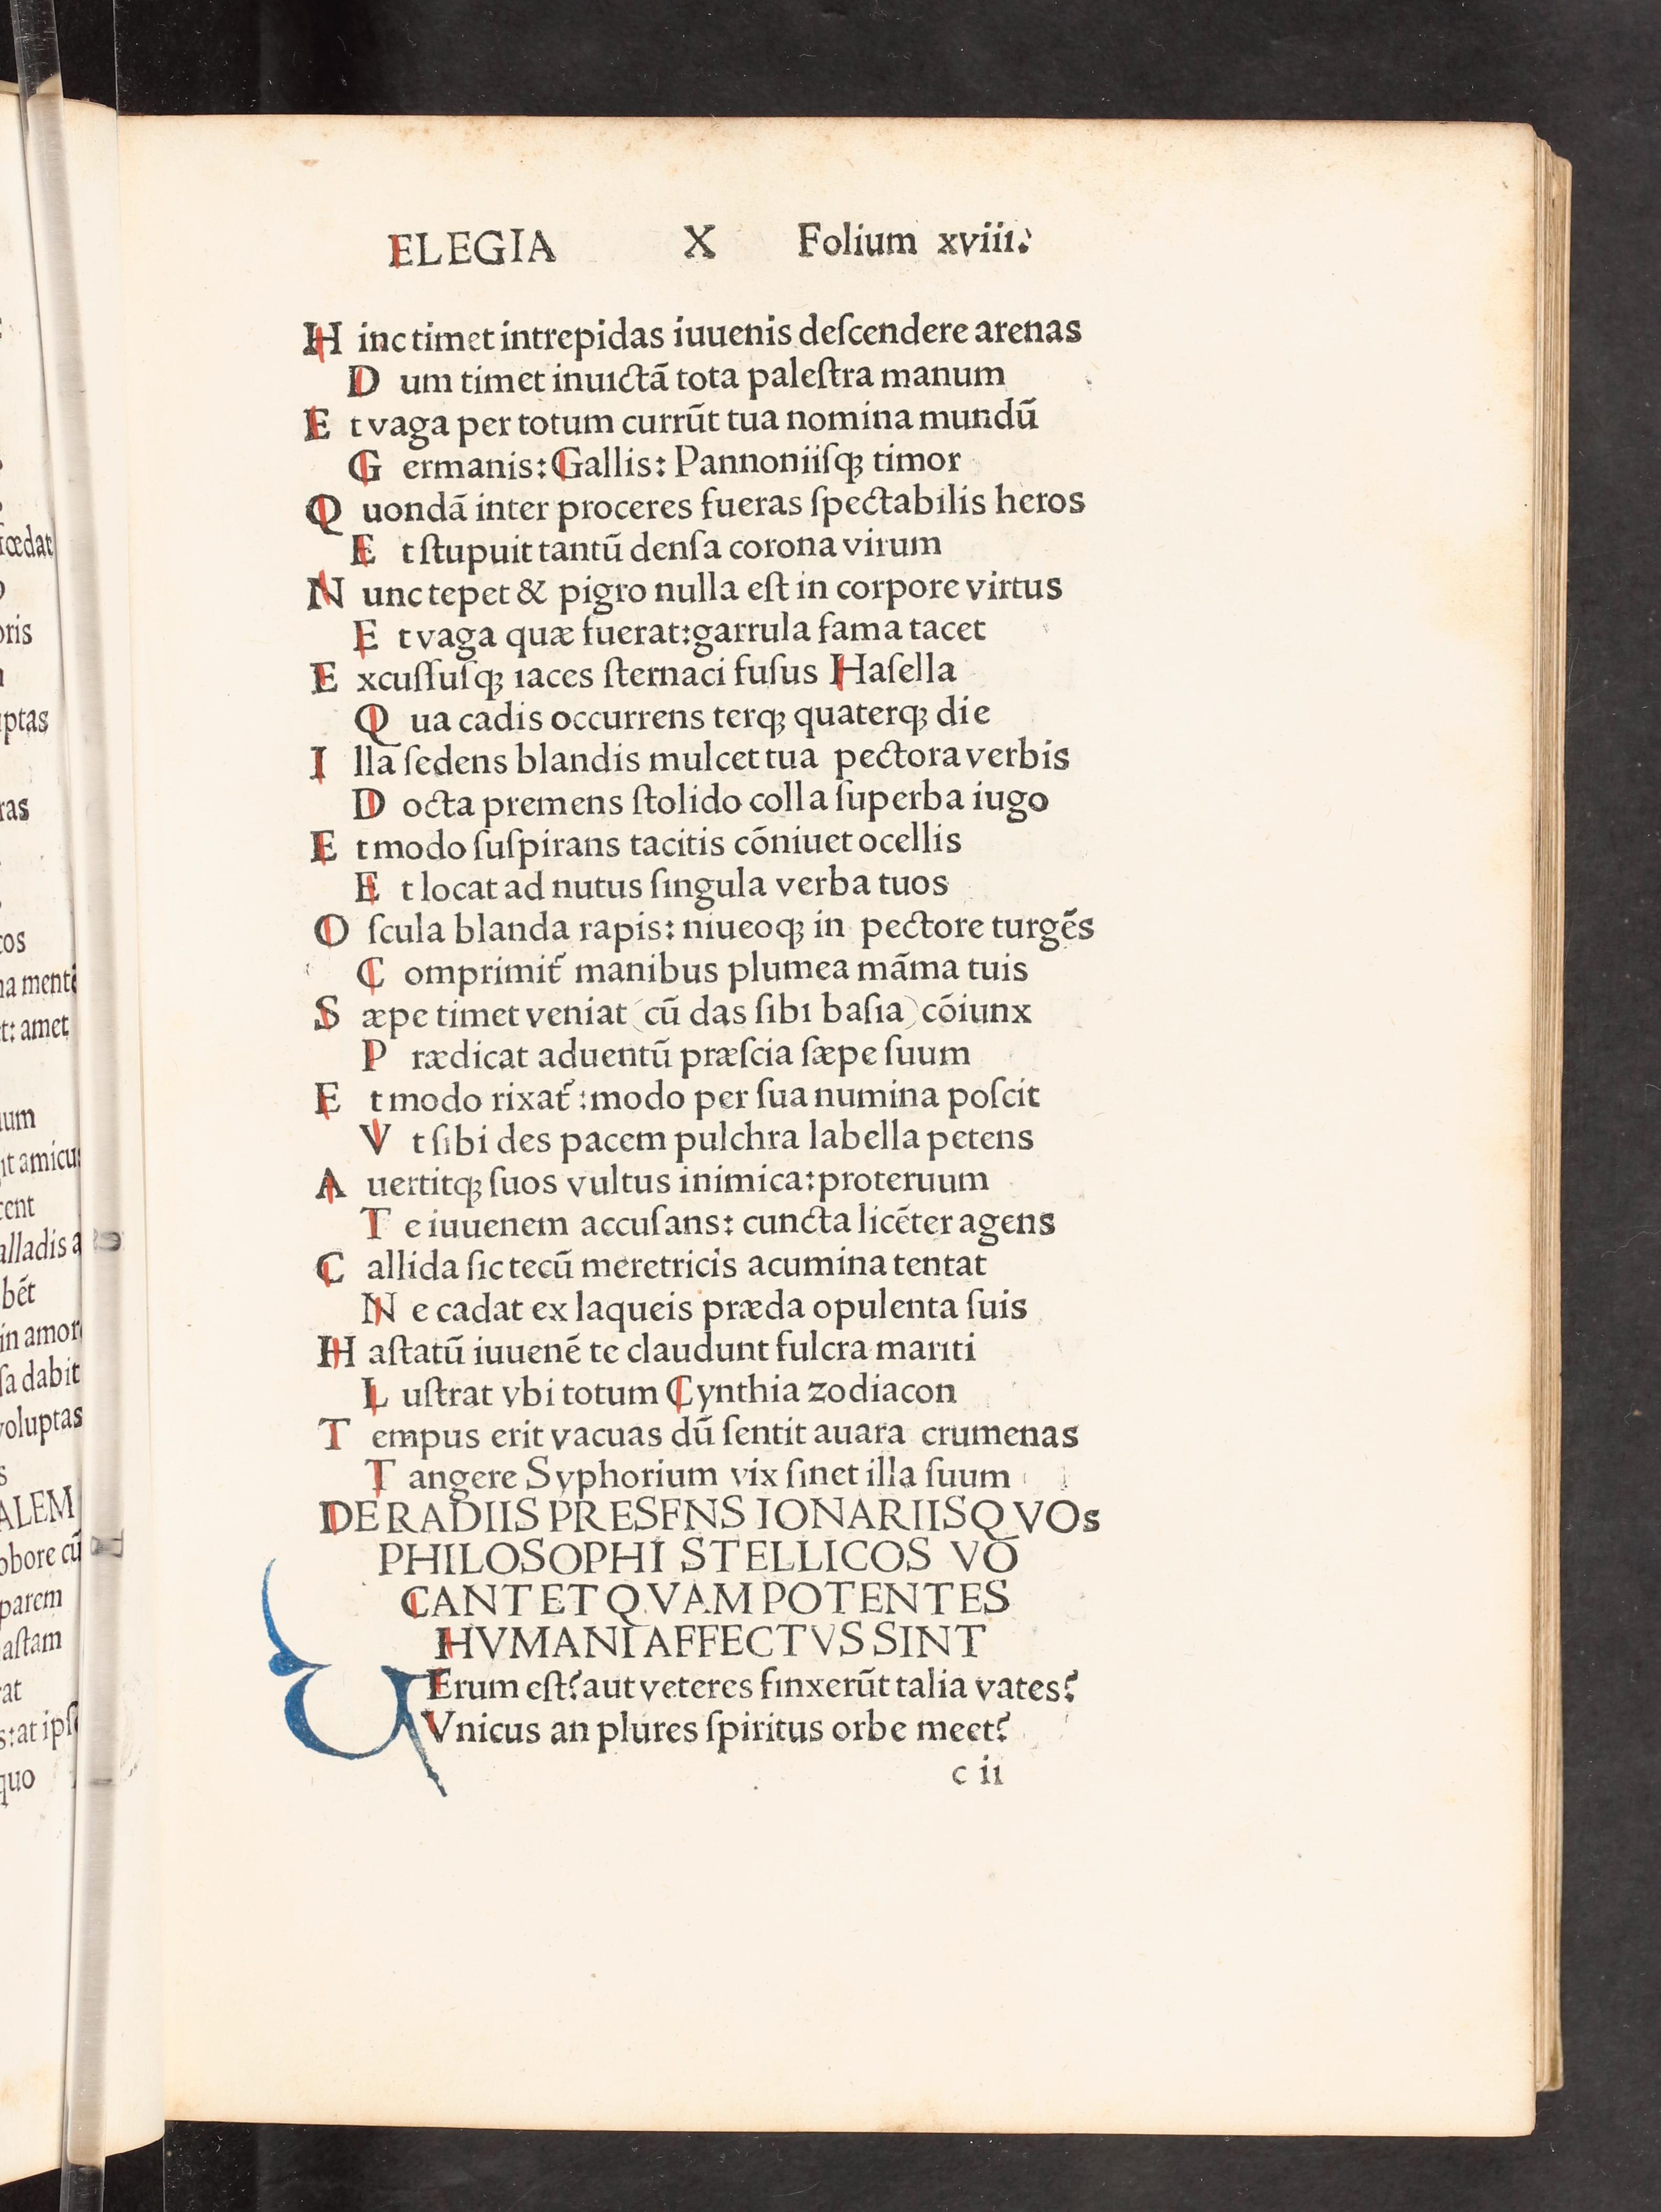 ELEGIA X Folium xviii.
H inc timet intrepidas iuuenis deſcendere arenas
D um timet inuictā tota paleſtra manum
E t vaga per totum currūt tua nomina mundū
G ermanis: Gallis: Pannoniiſqꝫ timor
Q uondā inter proceres fueras ſpectabilis heros
E t ſtupuit tantū denſa corona virum
N unc tepet & pigro nulla eſt in corpore virtus
E t vaga quæ fuerat: garrula fama tacet
E xcuſſuſqꝫ iaces ſternaci fuſus Haſella
Q ua cadis occurrens terqꝫ quaterqꝫ die
I lla ſedens blandis mulcet tua pectora verbis
D octa premens ſtolido colla ſuperba iugo
E t modo ſuſpirans tacitis cōniuet ocellis
E t locat ad nutus ſingula verba tuos
O ſcula blanda rapis: niueoqꝫ in pectore turgēs
C omprimit᷑ manibus plumea māma tuis
S æpe timet veniat (cū das ſibi baſia) cōiunx
P rædicat aduentū præſcia ſæpe ſuum
E t modo rixat᷑: modo per ſua numina poſcit
V t ſibi des pacem pulchra labella petens
A uertitqꝫ ſuos vultus inimica: proteruum
T e iuuenem accuſans: cuncta licēter agens
C allida ſic tecū meretricis acumina tentat
N e cadat ex laqueis præda opulenta ſuis
H aſtatū iuuenē te claudunt fulcra mariti
L uſtrat vbi totum Cynthia zodiacon
T empus erit vacuas dū ſentit auara crumenas
T angere Syphorium vix ſinet illa ſuum
DE RADIIS PRESENS IONARIIS QVOs
PHILOSOPHI STELLICOS VO
CANT ET QVAM POTENTES
HVMANI AFFECTVS SINT
VErum eſt? aut veteres finxerūt talia vates?
Vnicus an plures ſpiritus orbe meet?
c ii